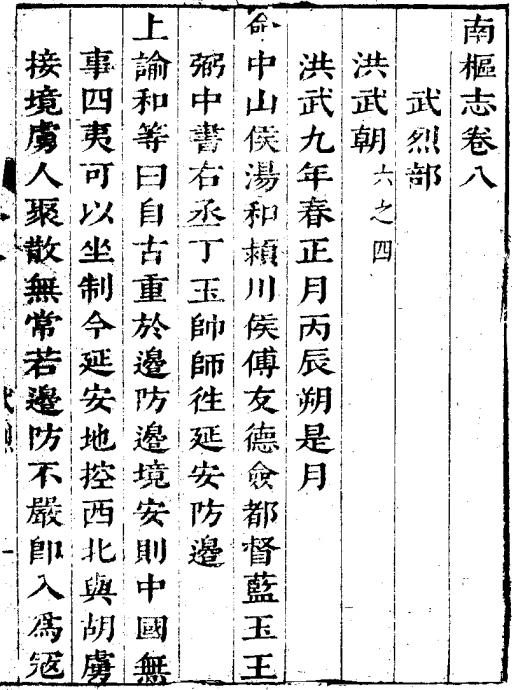 南樞志卷八
武烈部
洪武朝六之四
洪武九年春正月丙辰朔是月
命中山侯湯和頴川侯傅友德僉都督藍玉王
弼中書右丞丁玉帥師徃延安防邊
上諭和等曰自古重於邊防邊境安則中國無
事四夷可以坐制今延安地控西北與胡虜
接境虜人聚散無常若邊防不嚴即入爲寇